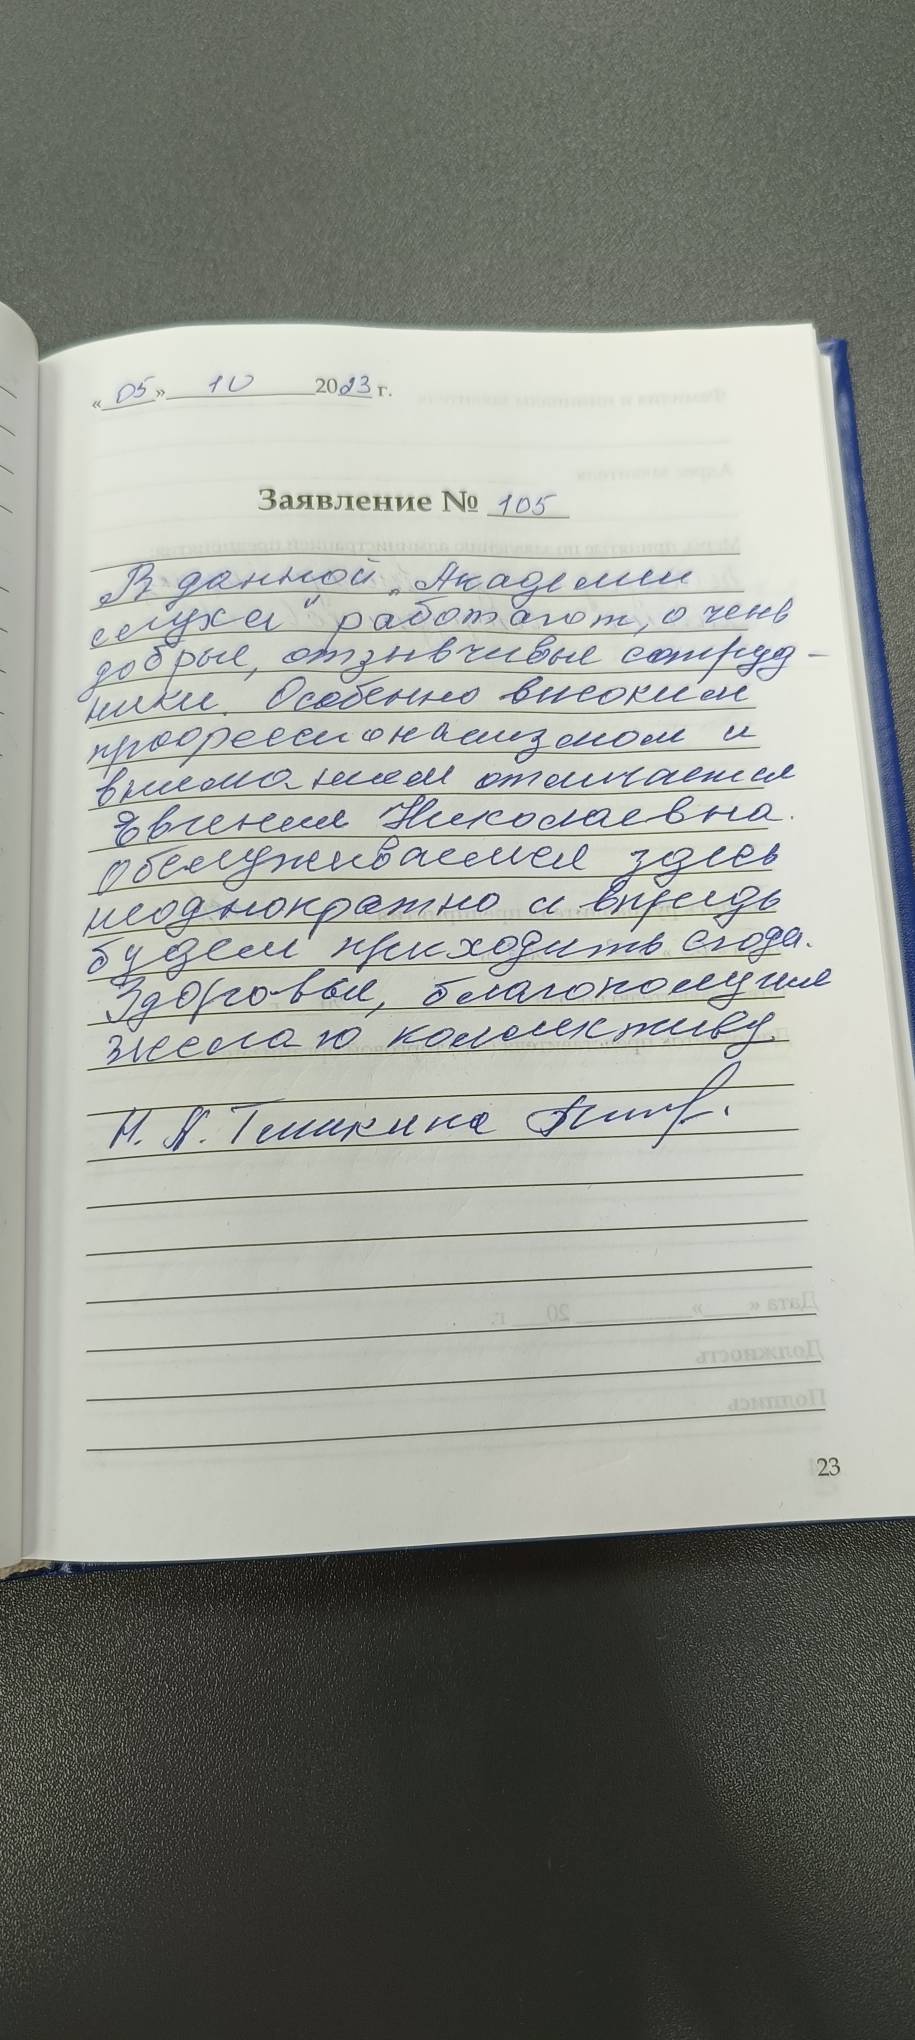 «05» 10 2023 г.
Заявление № 105
В данной „Академии
слуха" работают, очень
добрые, отзывчивые сотруд-
ники. Особенно высоким
профессионализмом и
вниманием отличается
Евгения Николаевна.
Обслуживаемся здесь
неоднократно и впредь
будем приходить сюда.
Здоровья, благополучия
желаю коллективу.
Н. А.
Дата «__»________ 20__ г.
Должность
Подпись
23